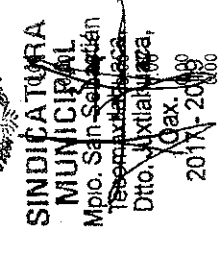 SINDICATURA
MUNICIPAL
Mpio. San Sebastián
Tecomaxtlahuaca,
Dtto. Juxtlahuaca,
Oax.
2017 - 2018